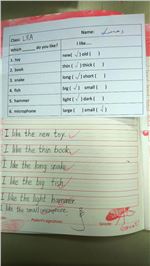 Class: L2A Name:
Which ______ do you like? I like....
1. toy new( √ ) old ( )
2. book thin ( √ ) thick ( )
3. snake long ( √ ) short ( )
4. fish big ( √ ) small ( )
5. hammer light ( √ ) dark ( )
6. microphone large ( ) small ( √ )
I like the new toy.
I like the thin book.
I like the long snake.
I like the big fish.
I like the light hammer.
I like the small microphone.
Parent's signature: